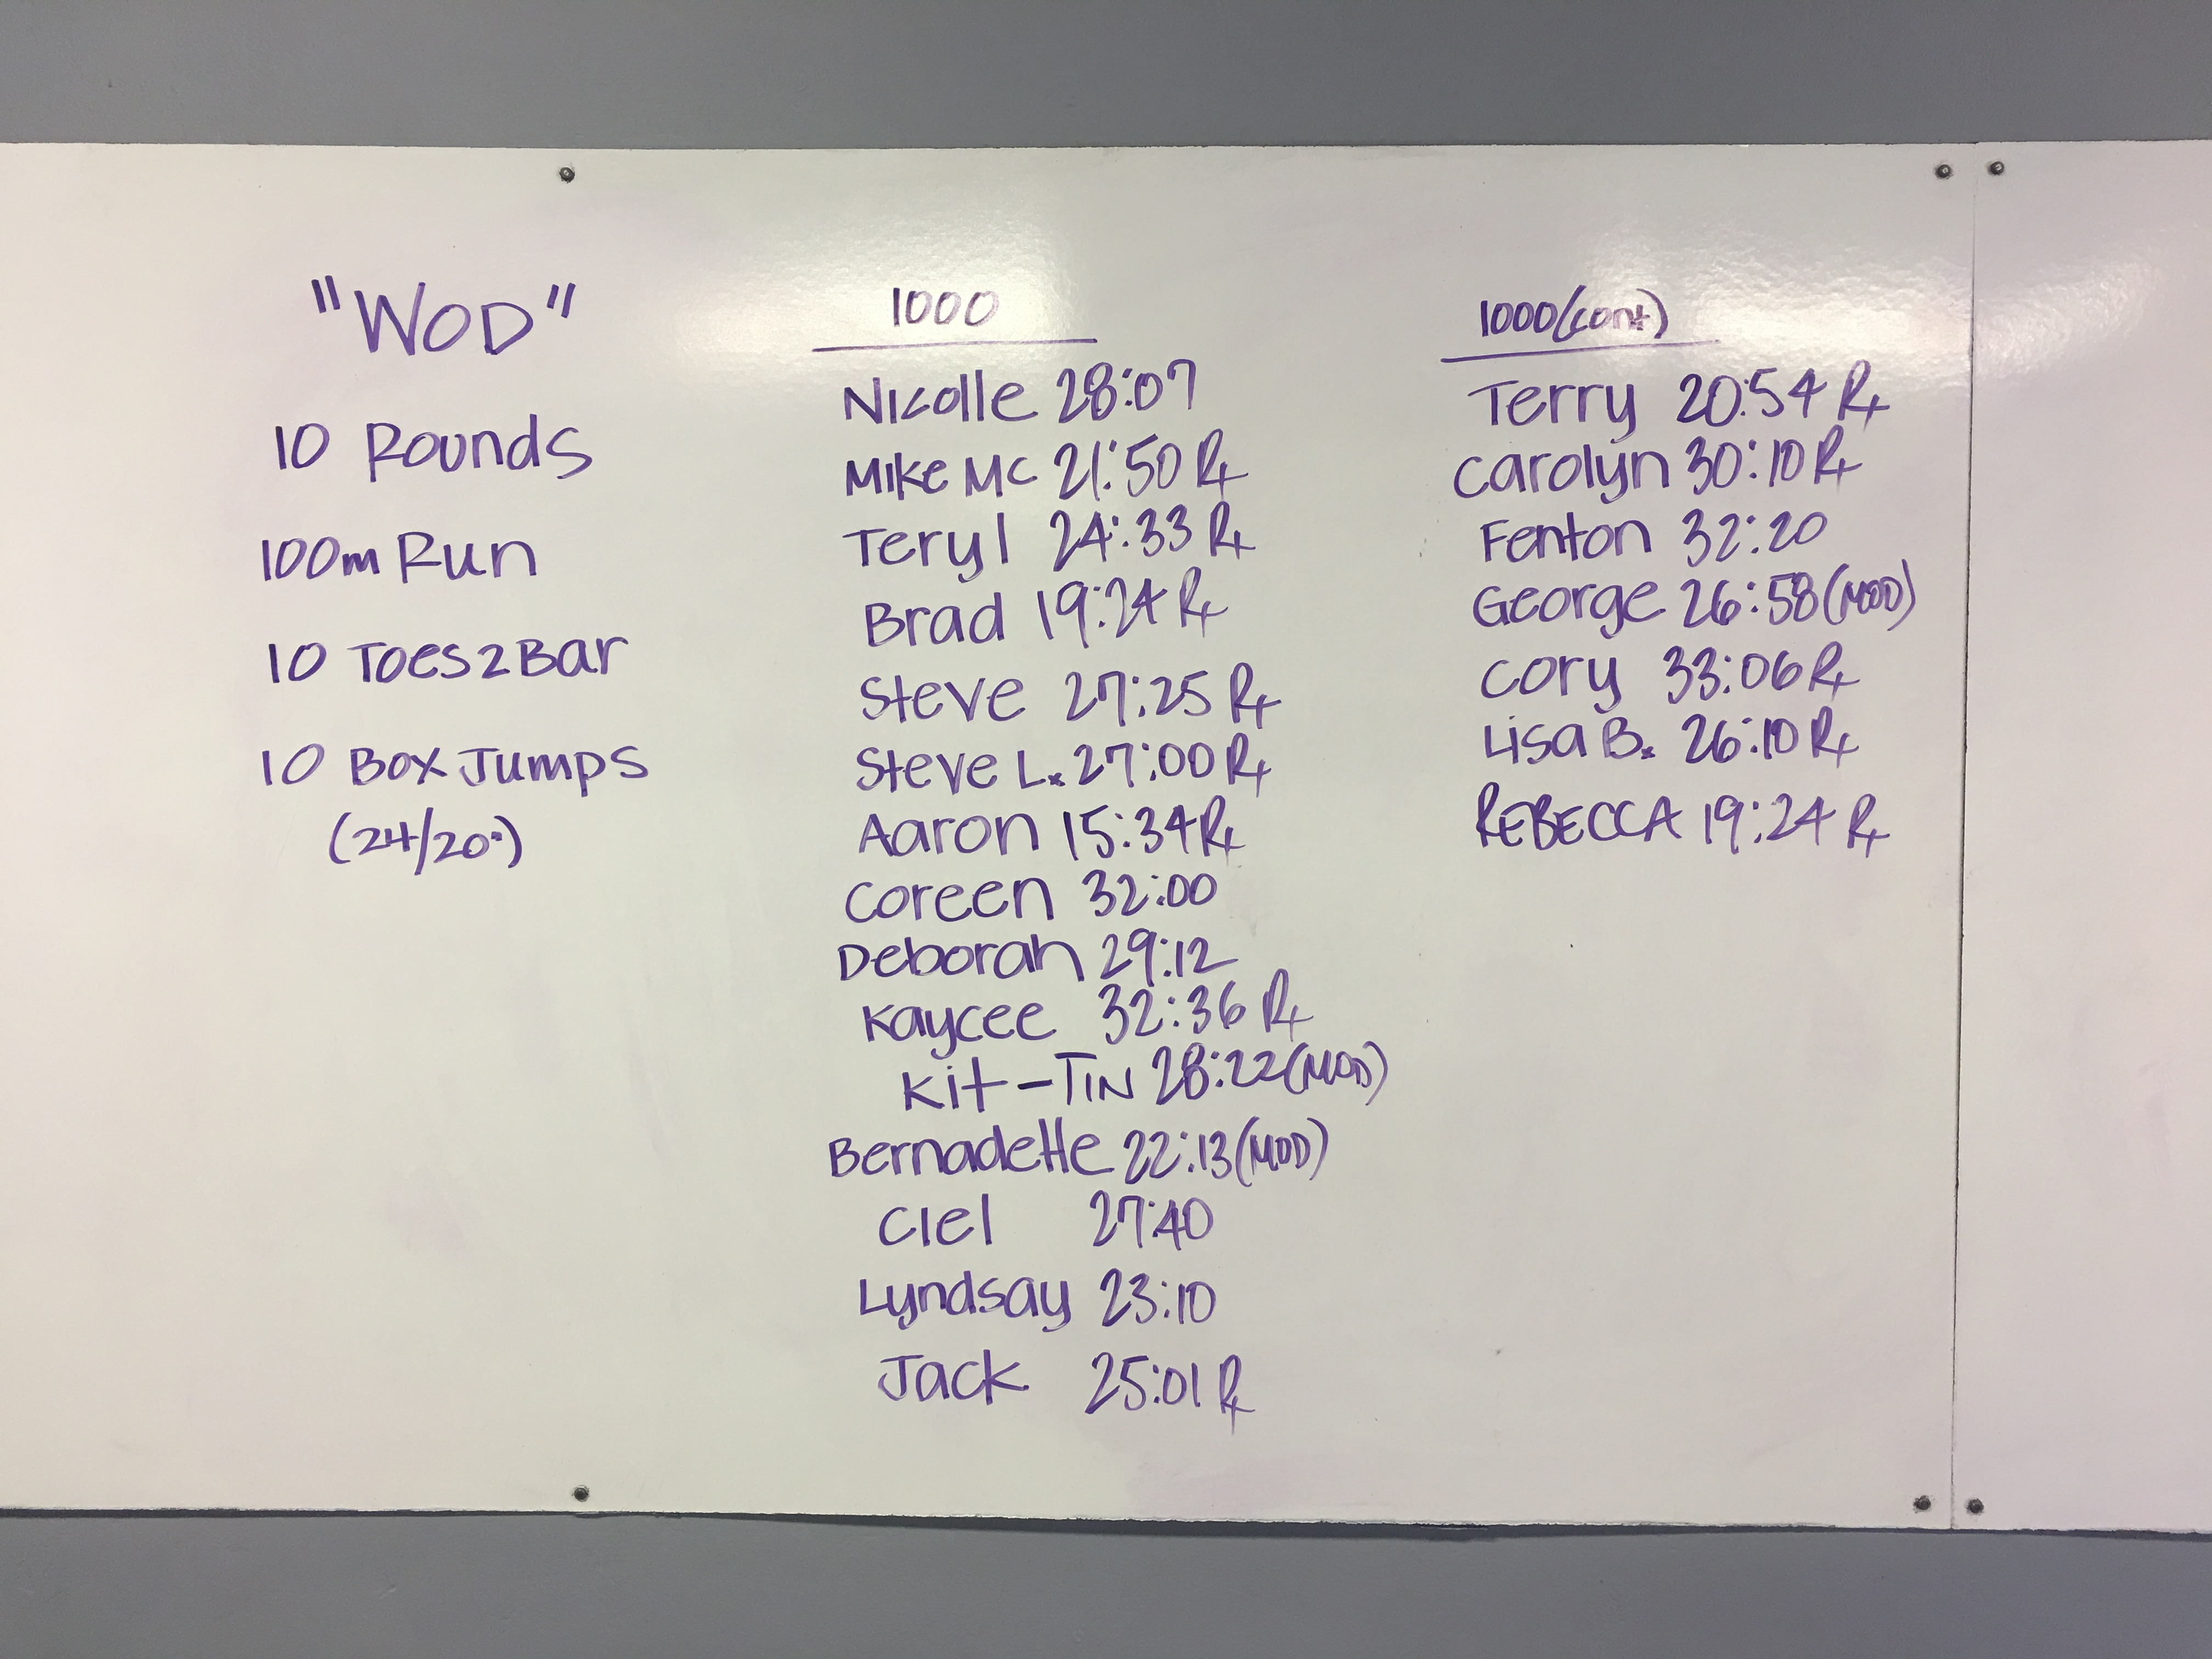 "WOD"
10 Rounds
100m Run
10 Toes2Bar
10 Box Jumps
(24/20")
1000
Nicolle 28:07
Mike Mc 21:50 Rx
Teryl 24:33 Rx
Brad 19:24 Rx
Steve 27:25 Rx
Steve L. 27:00 Rx
Aaron 15:34 Rx
Coreen 32:00
Deborah 29:12
Kaycee 32:36 Rx
Kit-Tin 28:22 (MOD)
Bernadette 22:13 (MOD)
Ciel 27:40
Lyndsay 23:10
Jack 25:01 Rx
1000 (cont)
Terry 20:54 Rx
Carolyn 30:10 Rx
Fenton 32:20
George 26:58 (MOD)
Cory 33:06 Rx
Lisa B. 26:10 Rx
REBECCA 19:24 Rx